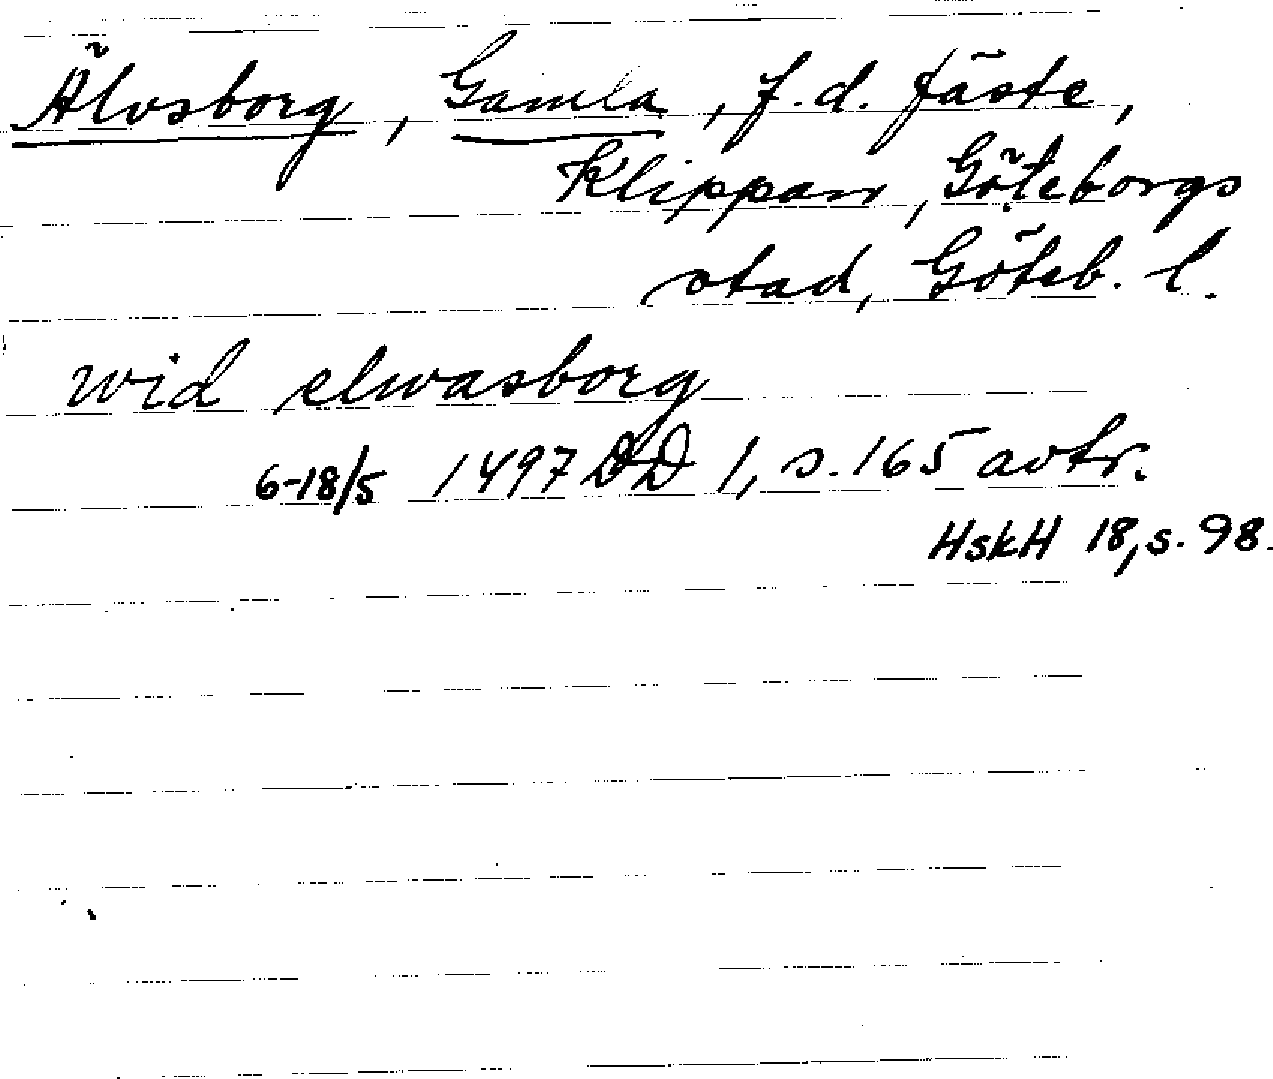 Älvsborg, Gamla, f.d. fäste,
Klippan, Göteborgs
stad, Göteb. l.
wid elwasborg
6-18/5 1497 DD 1, s. 165 avtr.
HskH 18, s. 98.